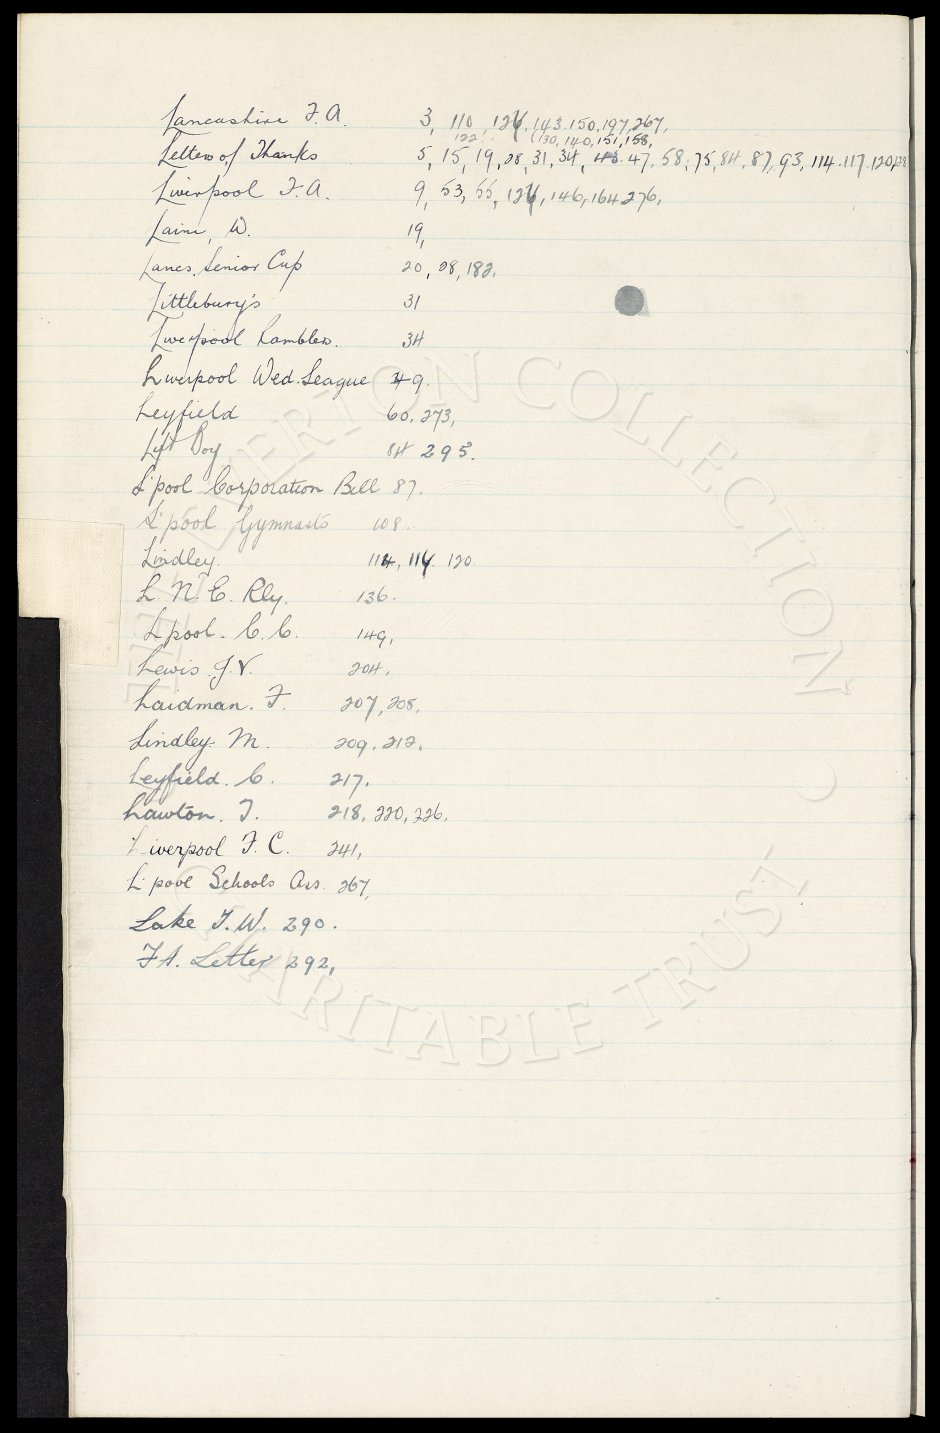 Lancashire F.A. 3, 110, 126, 143. 150, 197, 267,
122 (130, 140, 151, 158,
Letters of Thanks 5, 15, 19, 28, 31, 34, 43 47, 58, 75, 84, 87, 93, 114. 117. 120,
Liverpool F.A. 9, 53, 55, 126, 146, 164 276,
Laine, W. 19,
Lancs. Senior Cup 20, 28, 182,
Littlebury's 31
Liverpool Ramblers. 34
Liverpool Wed. League 49.
Leyfield 60, 273,
Lift Boy 84 295.
L'pool Corporation Bill 87.
L'pool Gymnasts 108.
Lindley. 114, 117. 120.
L. N. E. Rly. 136.
L'pool. C. C. 149,
Lewis. J. V. 204,
Laidman. F. 207, 208,
Lindley. M. 209, 212,
Leyfield. C. 217,
Lawton. T. 218, 220, 226,
Liverpool F. C. 241,
L'pool Schools Ass. 267,
Lake T. W. 290.
F A. Letter 292,
THE EVERTON COLLECTION • CHARITABLE TRUST